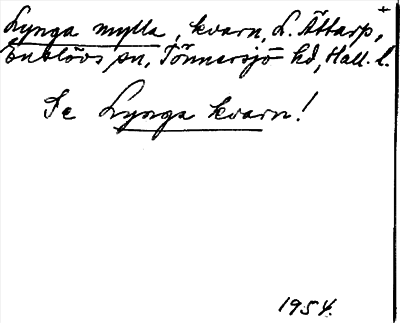 Lynga mylla, kvarn, L. Attarp,
Enslövs sn, Tönnersjö hd, Hall. l.
Se Lynga kvarn!
1954.